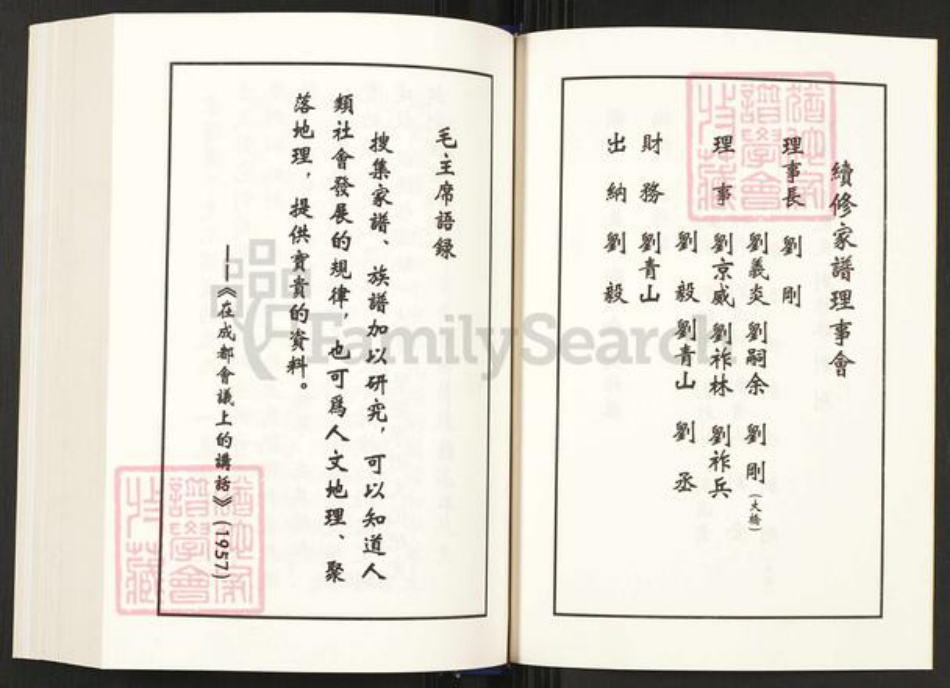 續修家譜理事會
理事長 劉剛
劉義炎 劉嗣余 劉剛(大橋)
理事 劉京威 劉祚林 劉祚兵
劉毅 劉青山 劉丞
財務 劉青山
出納 劉毅
毛主席語録
搜集家譜、族譜加以研究，可以知道人
類社會發展的規律，也可爲人文地理、聚
落地理，提供寶貴的資料。
——《在成都會議上的講話》(1957)
FamilySearch
譜學會
收藏
譜學會
收藏